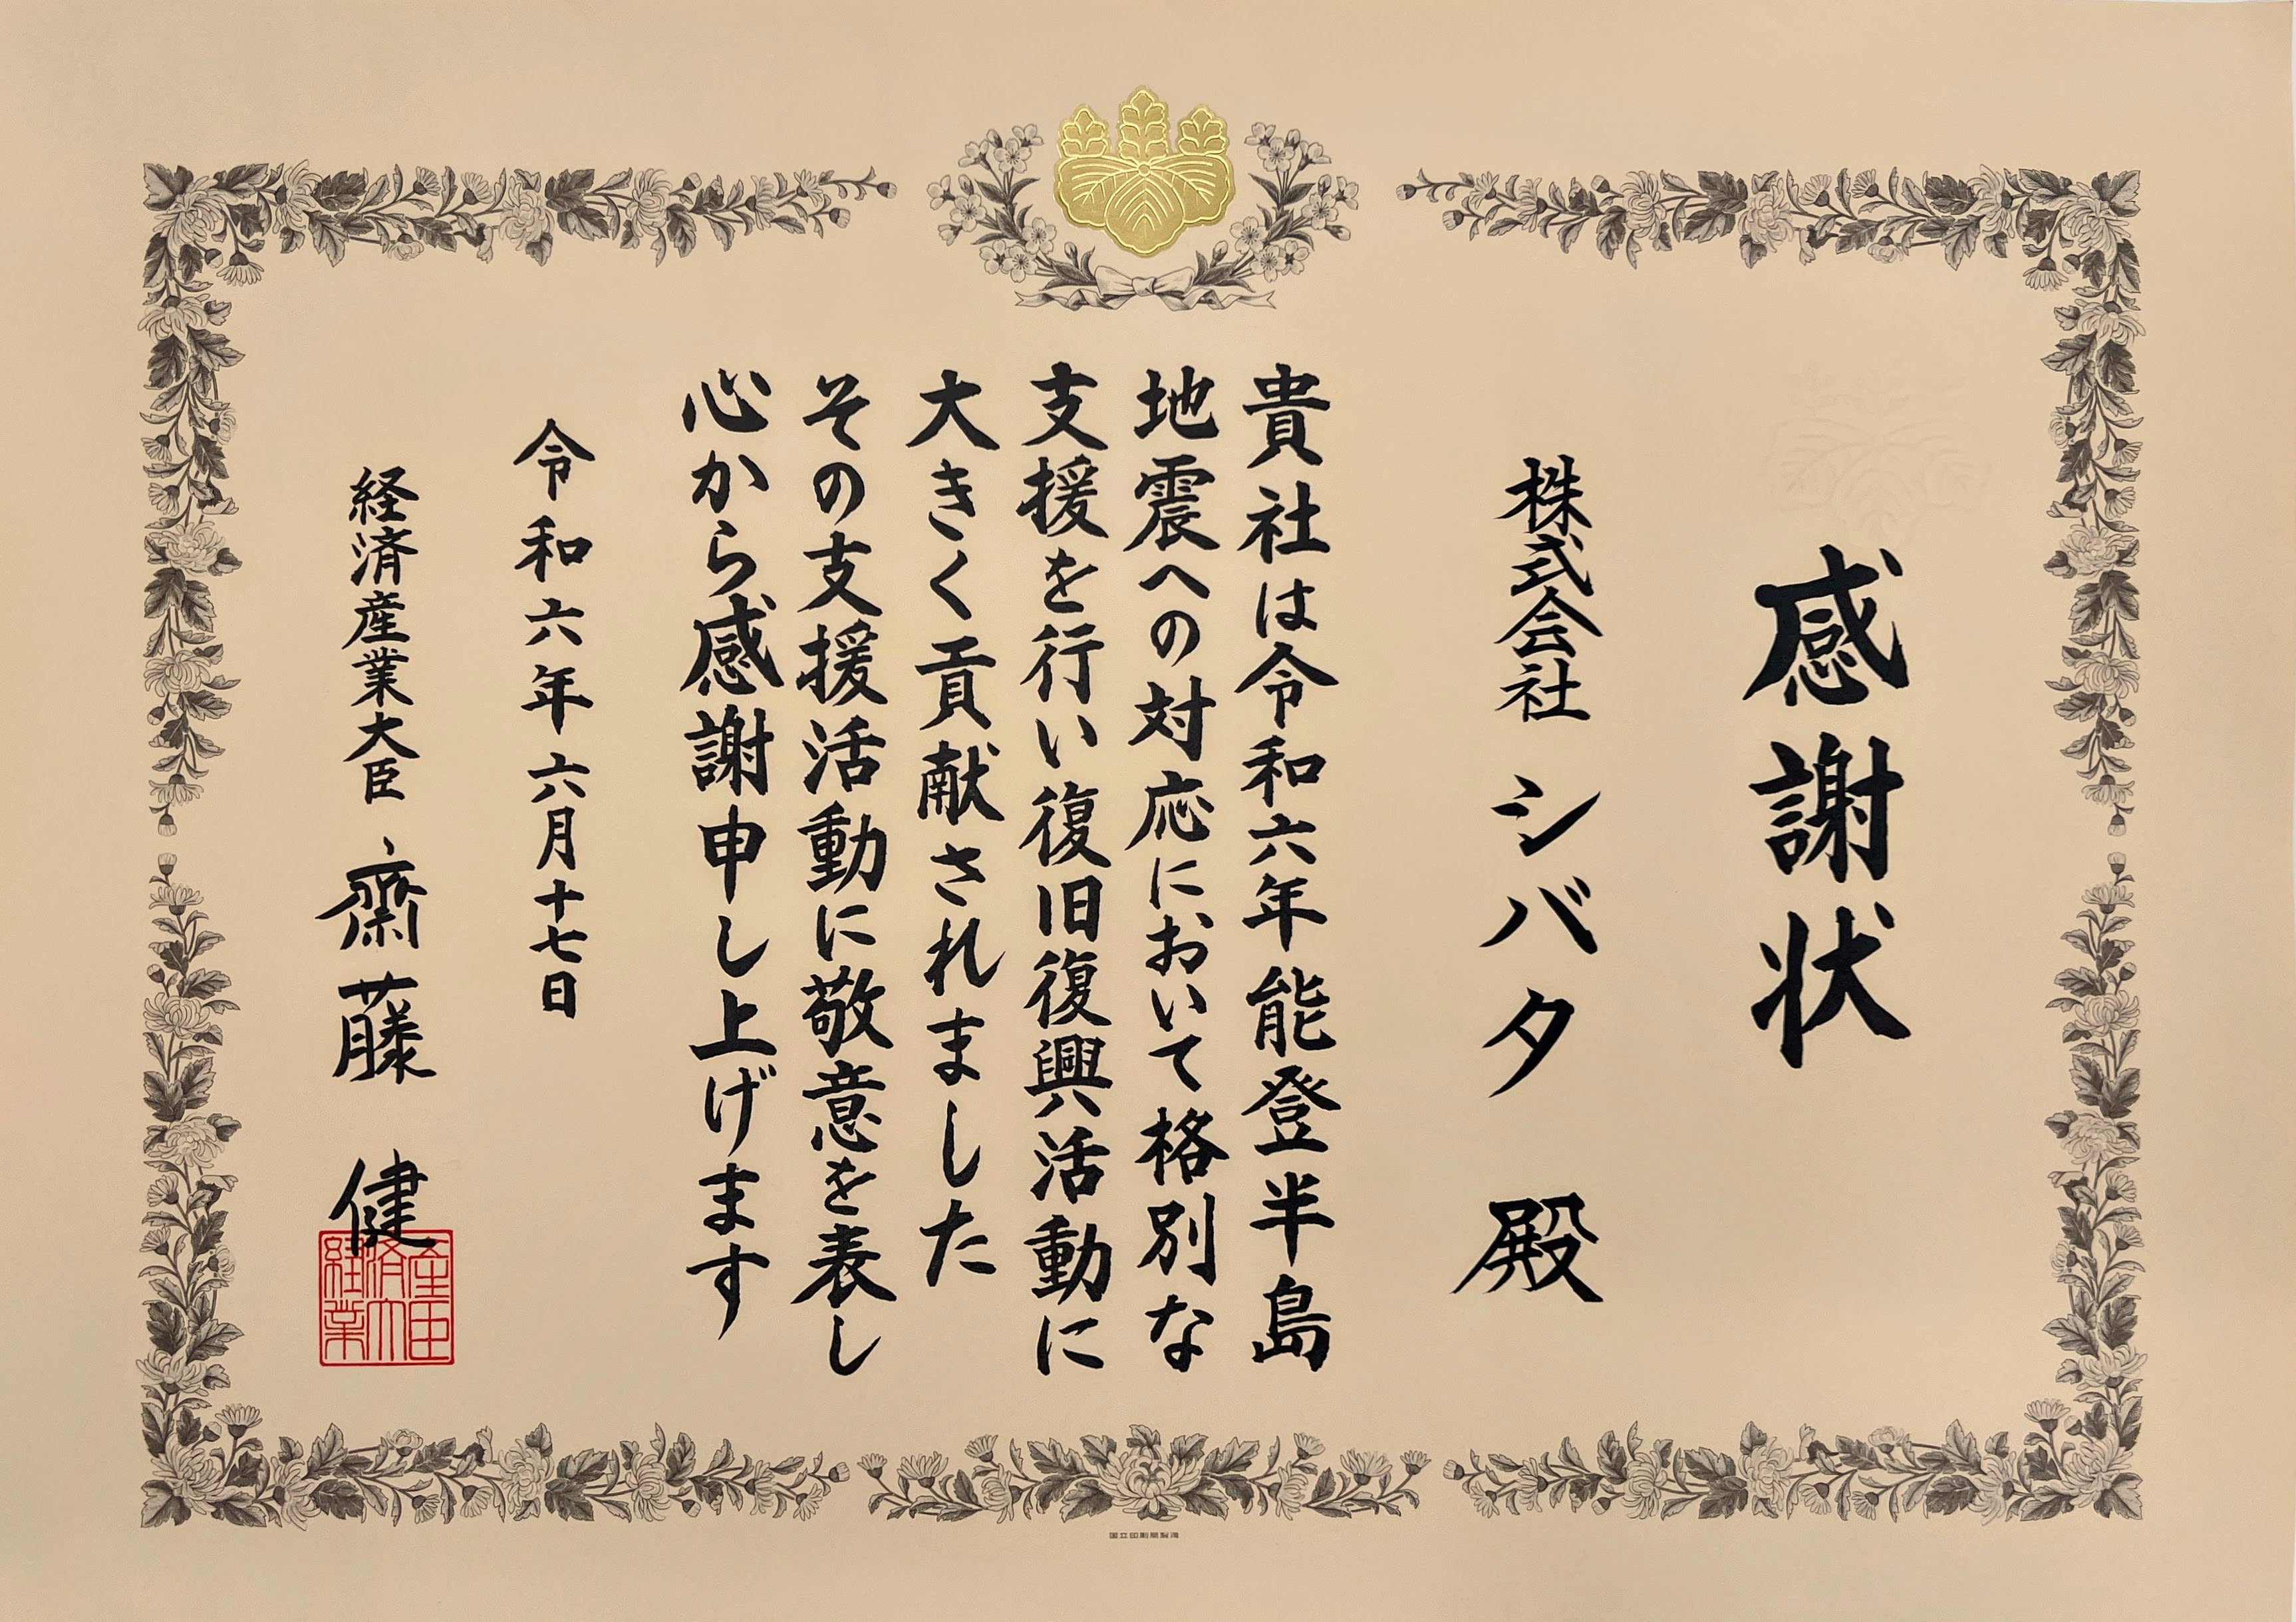 感謝状
株式会社 シバタ 殿
貴社は令和六年能登半島
地震への対応において格別な
支援を行い復旧復興活動に
大きく貢献されました
その支援活動に敬意を表し
心から感謝申し上げます
令和六年六月十七日
経済産業大臣 齋藤 健
国立印刷局製造